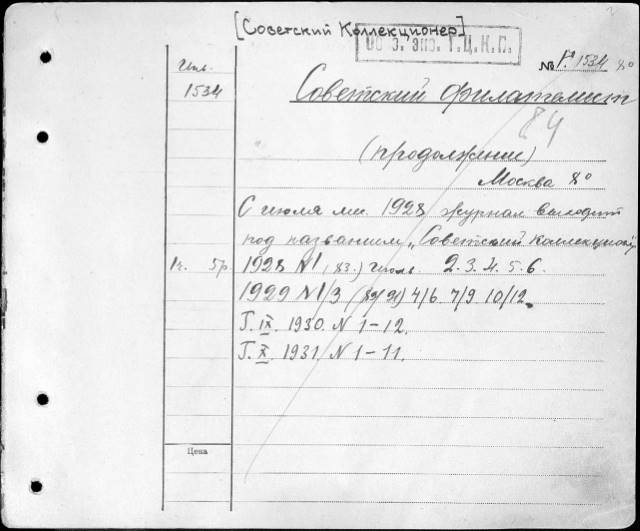 [Советский Коллекционер]
Об. э. эпо. Г.Ц.К.П.
№ Г. 1534 8°
Инв.
1534
Советский филателист
84
(продолжение)
Москва 8°
С июля м. 1928 журнал выходит
под названием „Советский коллекционер"
1к. 5р
1928 N 1 (83.) Июль. 2. 3. 4. 5. 6.
1929 N 1/3 4/6. 7/9. 10/12.
Г. IX. 1930. N 1-12.
Г. X. 1931. N 1-11.
Цена